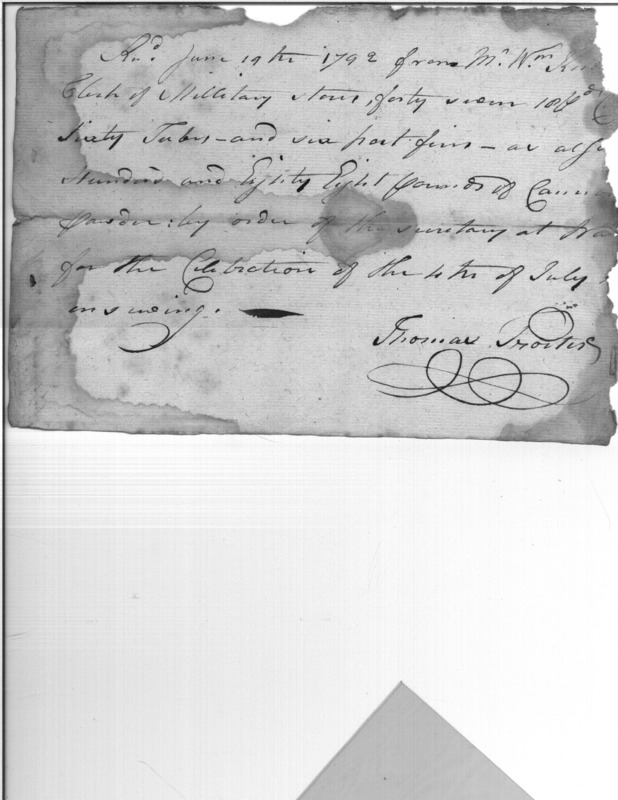 Rec'd June 19th 1792 from Mr. Wm
Clerk of Millitary stores, forty seven 18
Sixty Tubes - and six port fires - as also
Hundred and Eighty Eight pounds of Cannon
powder: by order of the secretary at War
for the Celibration of the 4th of July
insueing.
Thomas Procter